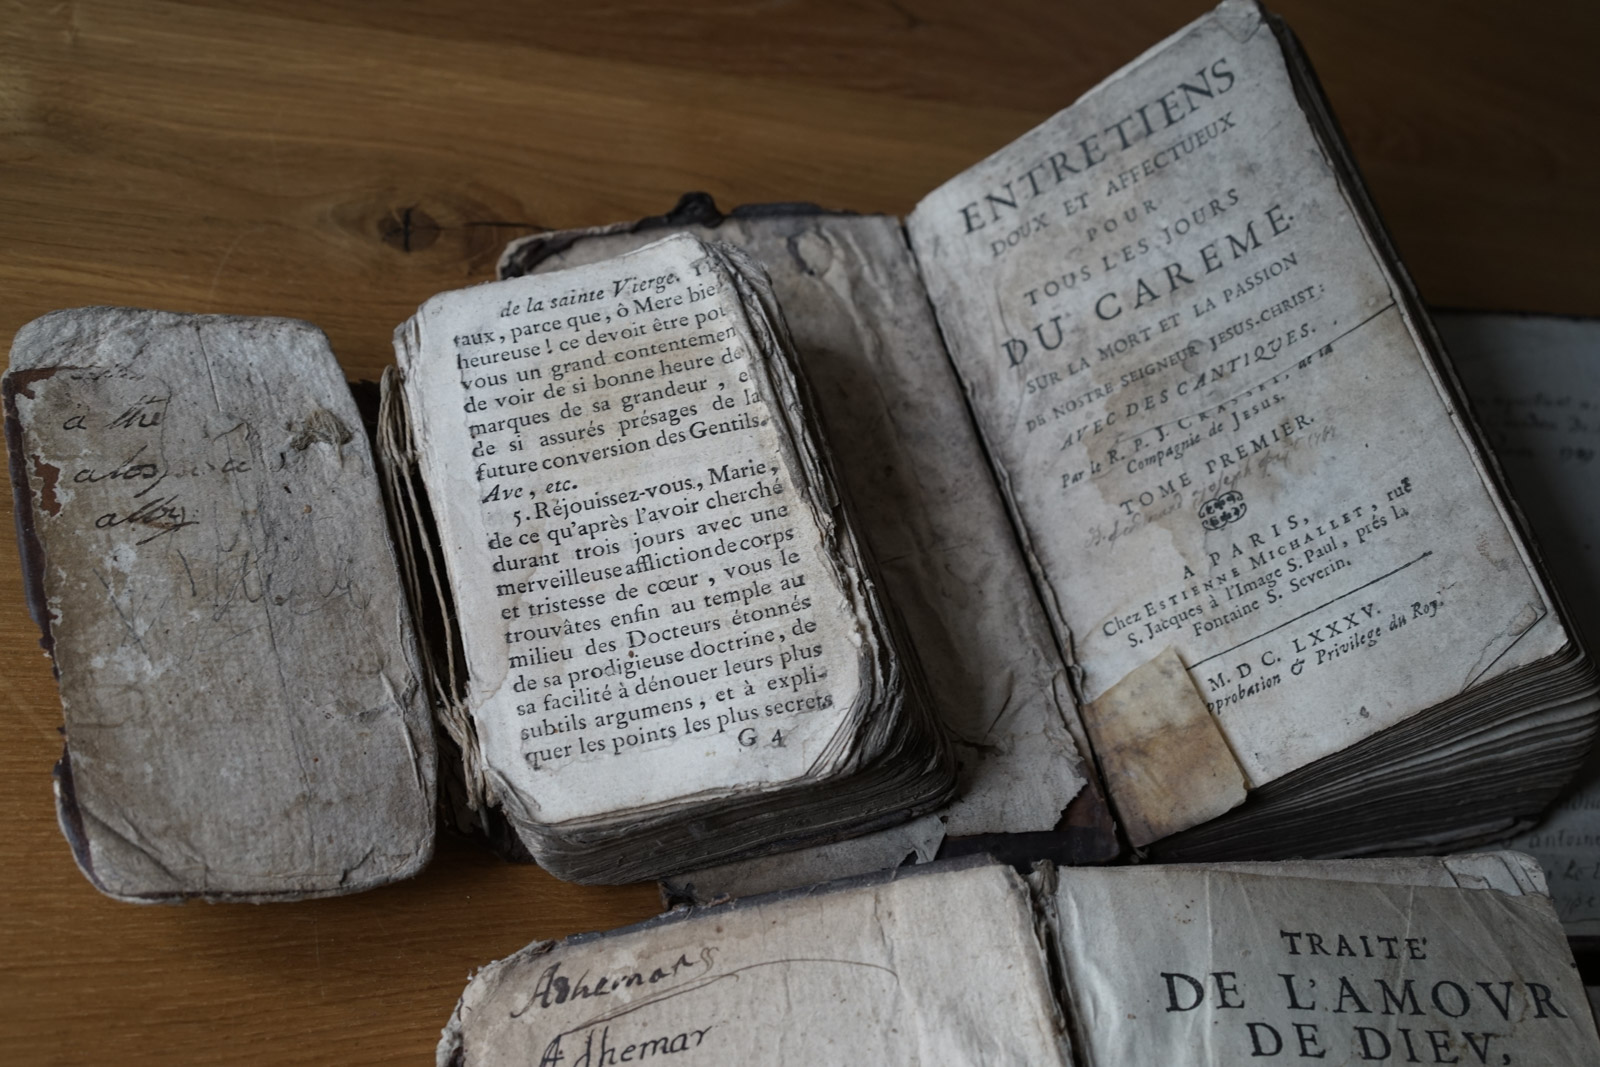 a the
alby
de la sainte Vierge.
taux, parce que, ô Mere bie
heureuse ! ce devoit être po
vous un grand contentemen
de voir de si bonne heure de
marques de sa grandeur, e
de si assurés présages de la
future conversion des Gentils.
Ave, etc.
5. Réjouissez-vous, Marie,
de ce qu'après l'avoir cherché
durant trois jours avec une
merveilleuse affliction de corps
et tristesse de cœur, vous le
trouvâtes enfin au temple au
milieu des Docteurs étonnés
de sa prodigieuse doctrine, de
sa facilité à dénouer leurs plus
subtils argumens, et à expli-
quer les points les plus secrets
G 4
ENTRETIENS
DOUX ET AFFECTUEUX
POUR
TOUS LES JOURS
DU CAREME.
SUR LA MORT ET LA PASSION
DE NOSTRE SEIGNEUR JESUS-CHRIST:
AVEC DES CANTIQUES.
Par le R. P. J. CRASSET, de la
Compagnie de Jesus.
TOME PREMIER.
A PARIS,
Chez ESTIENNE MICHALLET, ruë
S. Jacques à l'Image S. Paul, prés la
Fontaine S. Severin.
M. DC. LXXXV.
pprobation & Privilege du Roy.
Adhemar
Adhemar
TRAITÉ
DE L'AMOVR
DE DIEV,